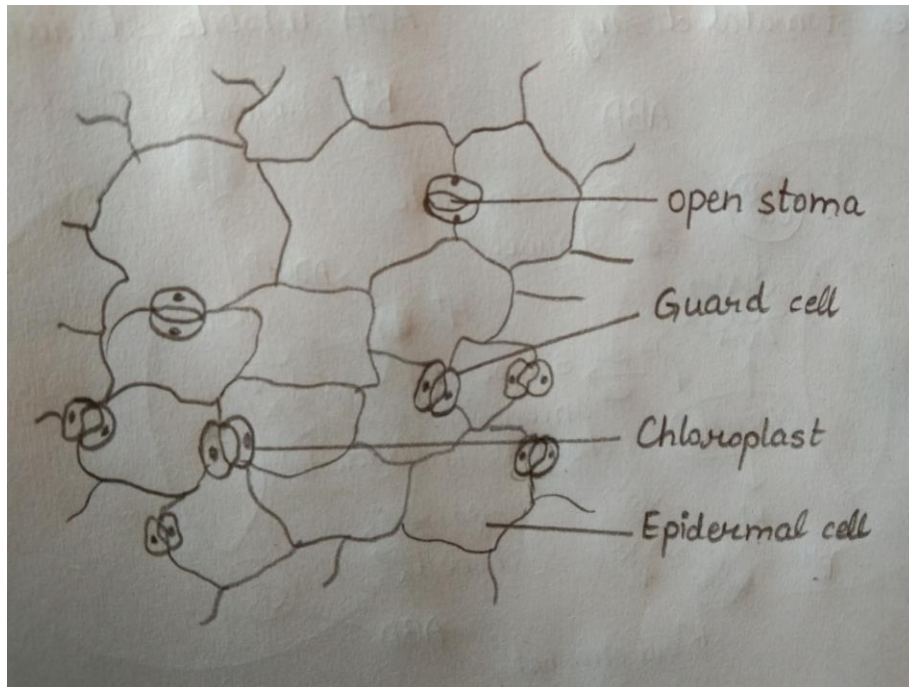 open stoma
Guard cell
Chloroplast
Epidermal cell